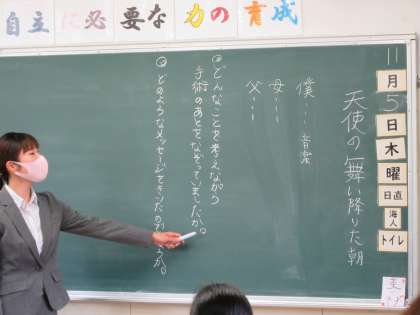 自主に必要な力の育成
11
月
5
日
木
曜
日直
海人
トイレ
天使の舞い降りた朝
僕・・・音楽
母・・・
父・・・
○どんなことを考えながら
手術のあとをなぞっていましたか。
○どのようなメッセージを